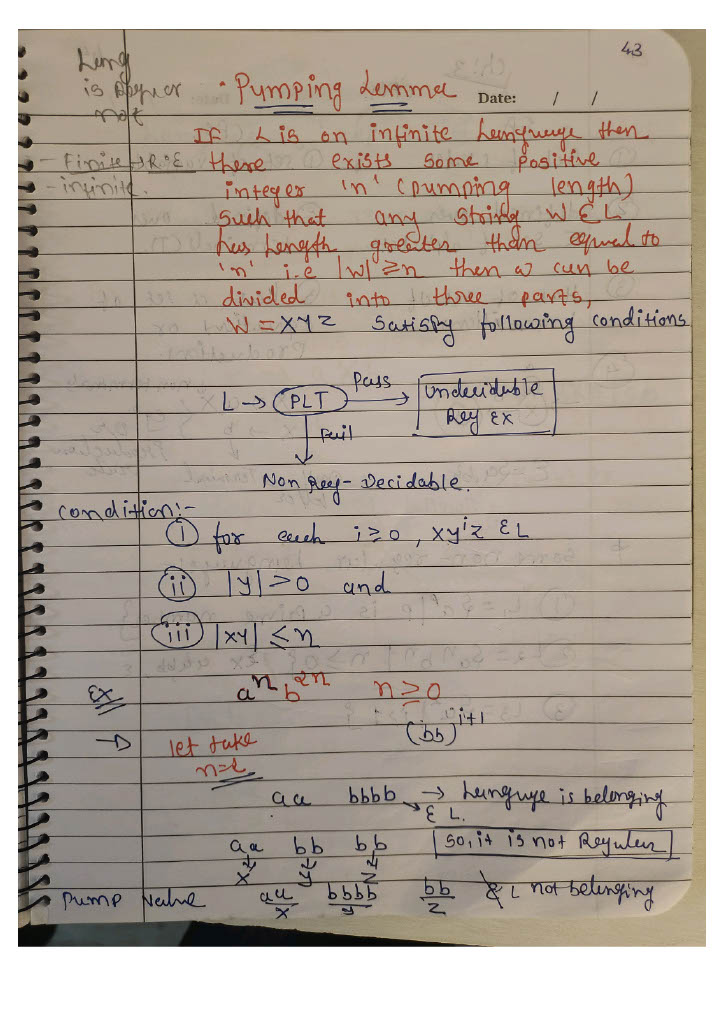 43
Lang
is Reguar
not
• Pumping Lemma
Date: / /
- Finite → R.E
- infinite.
If L is an infinite Language then
there exists some positive
integer 'n' (pumping length)
Such that any String W ∈ L
has Length greater than equal to
'n' i.e |w| ≥ n then w can be
divided into three parts,
W = XYZ Satisfy following conditions
L → (PLT) Pass → Undecidable
Reg Ex
Fail
Non Reg- Decidable.
Condition:-
(i) for each i ≥ 0, xyⁱz ∈ L
(ii) |y| > 0 and
(iii) |xy| ≤ n
Ex aⁿ b²ⁿ n ≥ 0
(bb)ⁱ⁺¹
→ let take
aa bbbb → Language is belonging
∈ L.
aa bb bb So, it is not Regular
X Y Z
Pump Value aa bbbb bb ∉ L not belonging
X Y Z